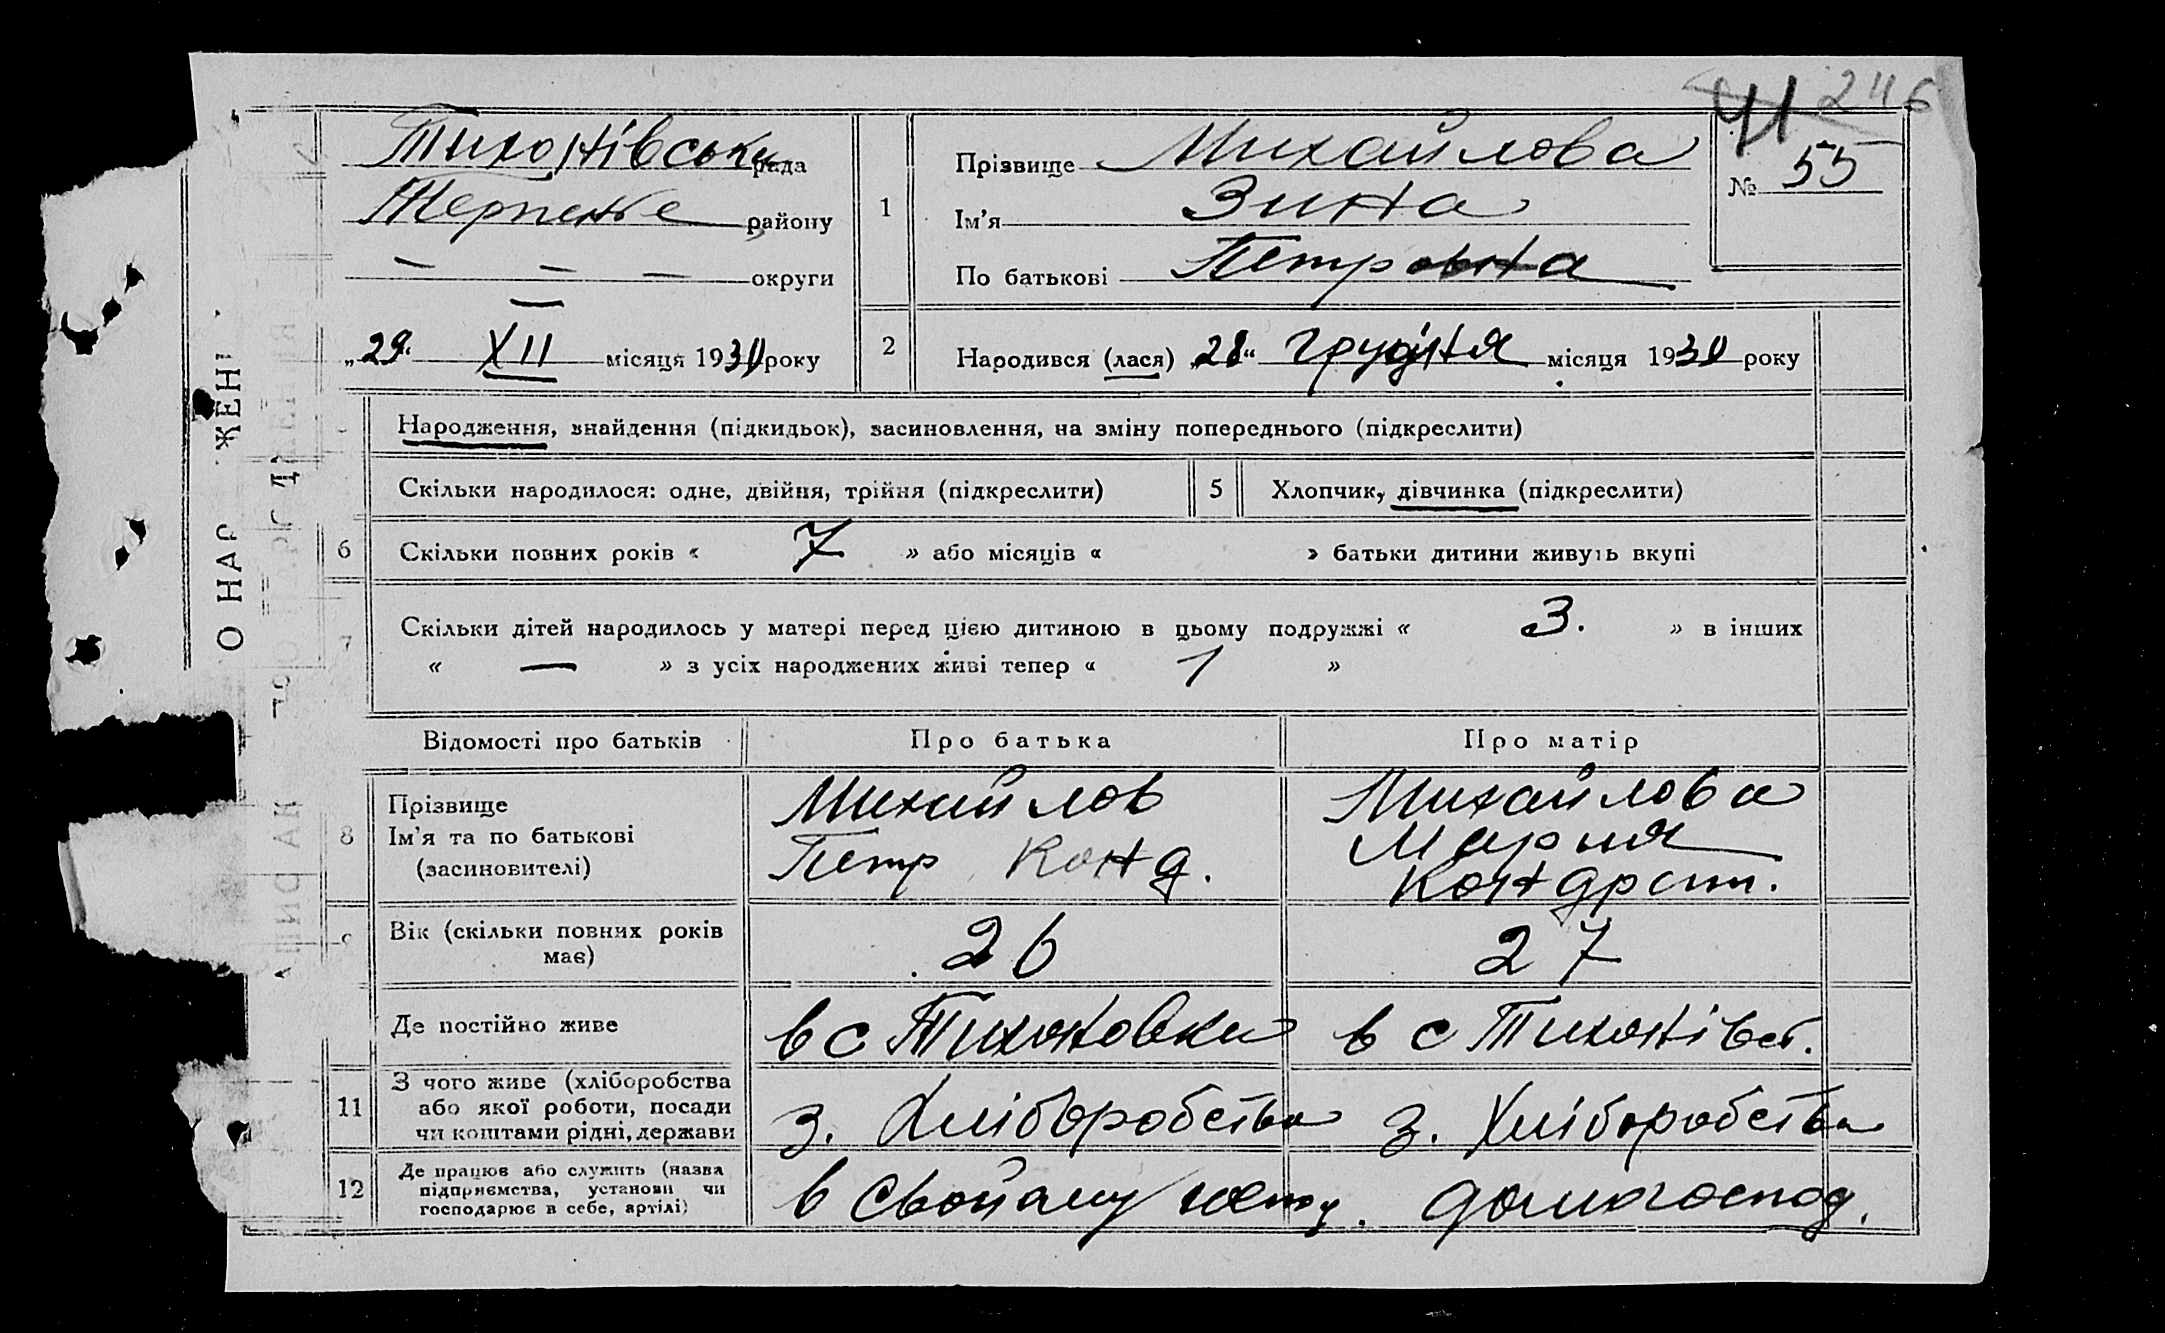 41 246
Тихонівська рада
Терпение району
— — — округи
—
„29“ XII місяця 1930 року
1
Прізвище Михайлова
Ім'я Зина
По батькові Петровна
№ 55
2
Народився (лася) „28“ грудня місяця 1930 року
О НАР ЖЕН
Народження, знайдення (підкидьок), засиновлення, на зміну попереднього (підкреслити)
Скільки народилося: одне, двійня, трійня (підкреслити)
5 Хлопчик, дівчинка (підкреслити)
6 Скільки повних років « 7 » або місяців « » батьки дитини живуть вкупі
7 Скільки дітей народилось у матері перед цією дитиною в цьому подружжі « 3. » в інших
« — » з усіх народжених живі тепер « 1 »
Відомості про батьків Про батька Про матір
8 Прізвище
Ім'я та по батькові
(засиновителі)
Михайлов
Петр Конд.
Михайлова
Мария
Кондрат.
9 Вік (скільки повних років
має)
26
27
Де постійно живе
в с Тихоновки
в с Тихонівст.
11 З чого живе (хліборобства
або якої роботи, посади
чи коштами рідні, держави
з. Хліборобства
з. Хліборобства
12 Де працює або служить (назва
підприємства, установи чи
господарює в себе, артілі)
в свойому
домогоспод.